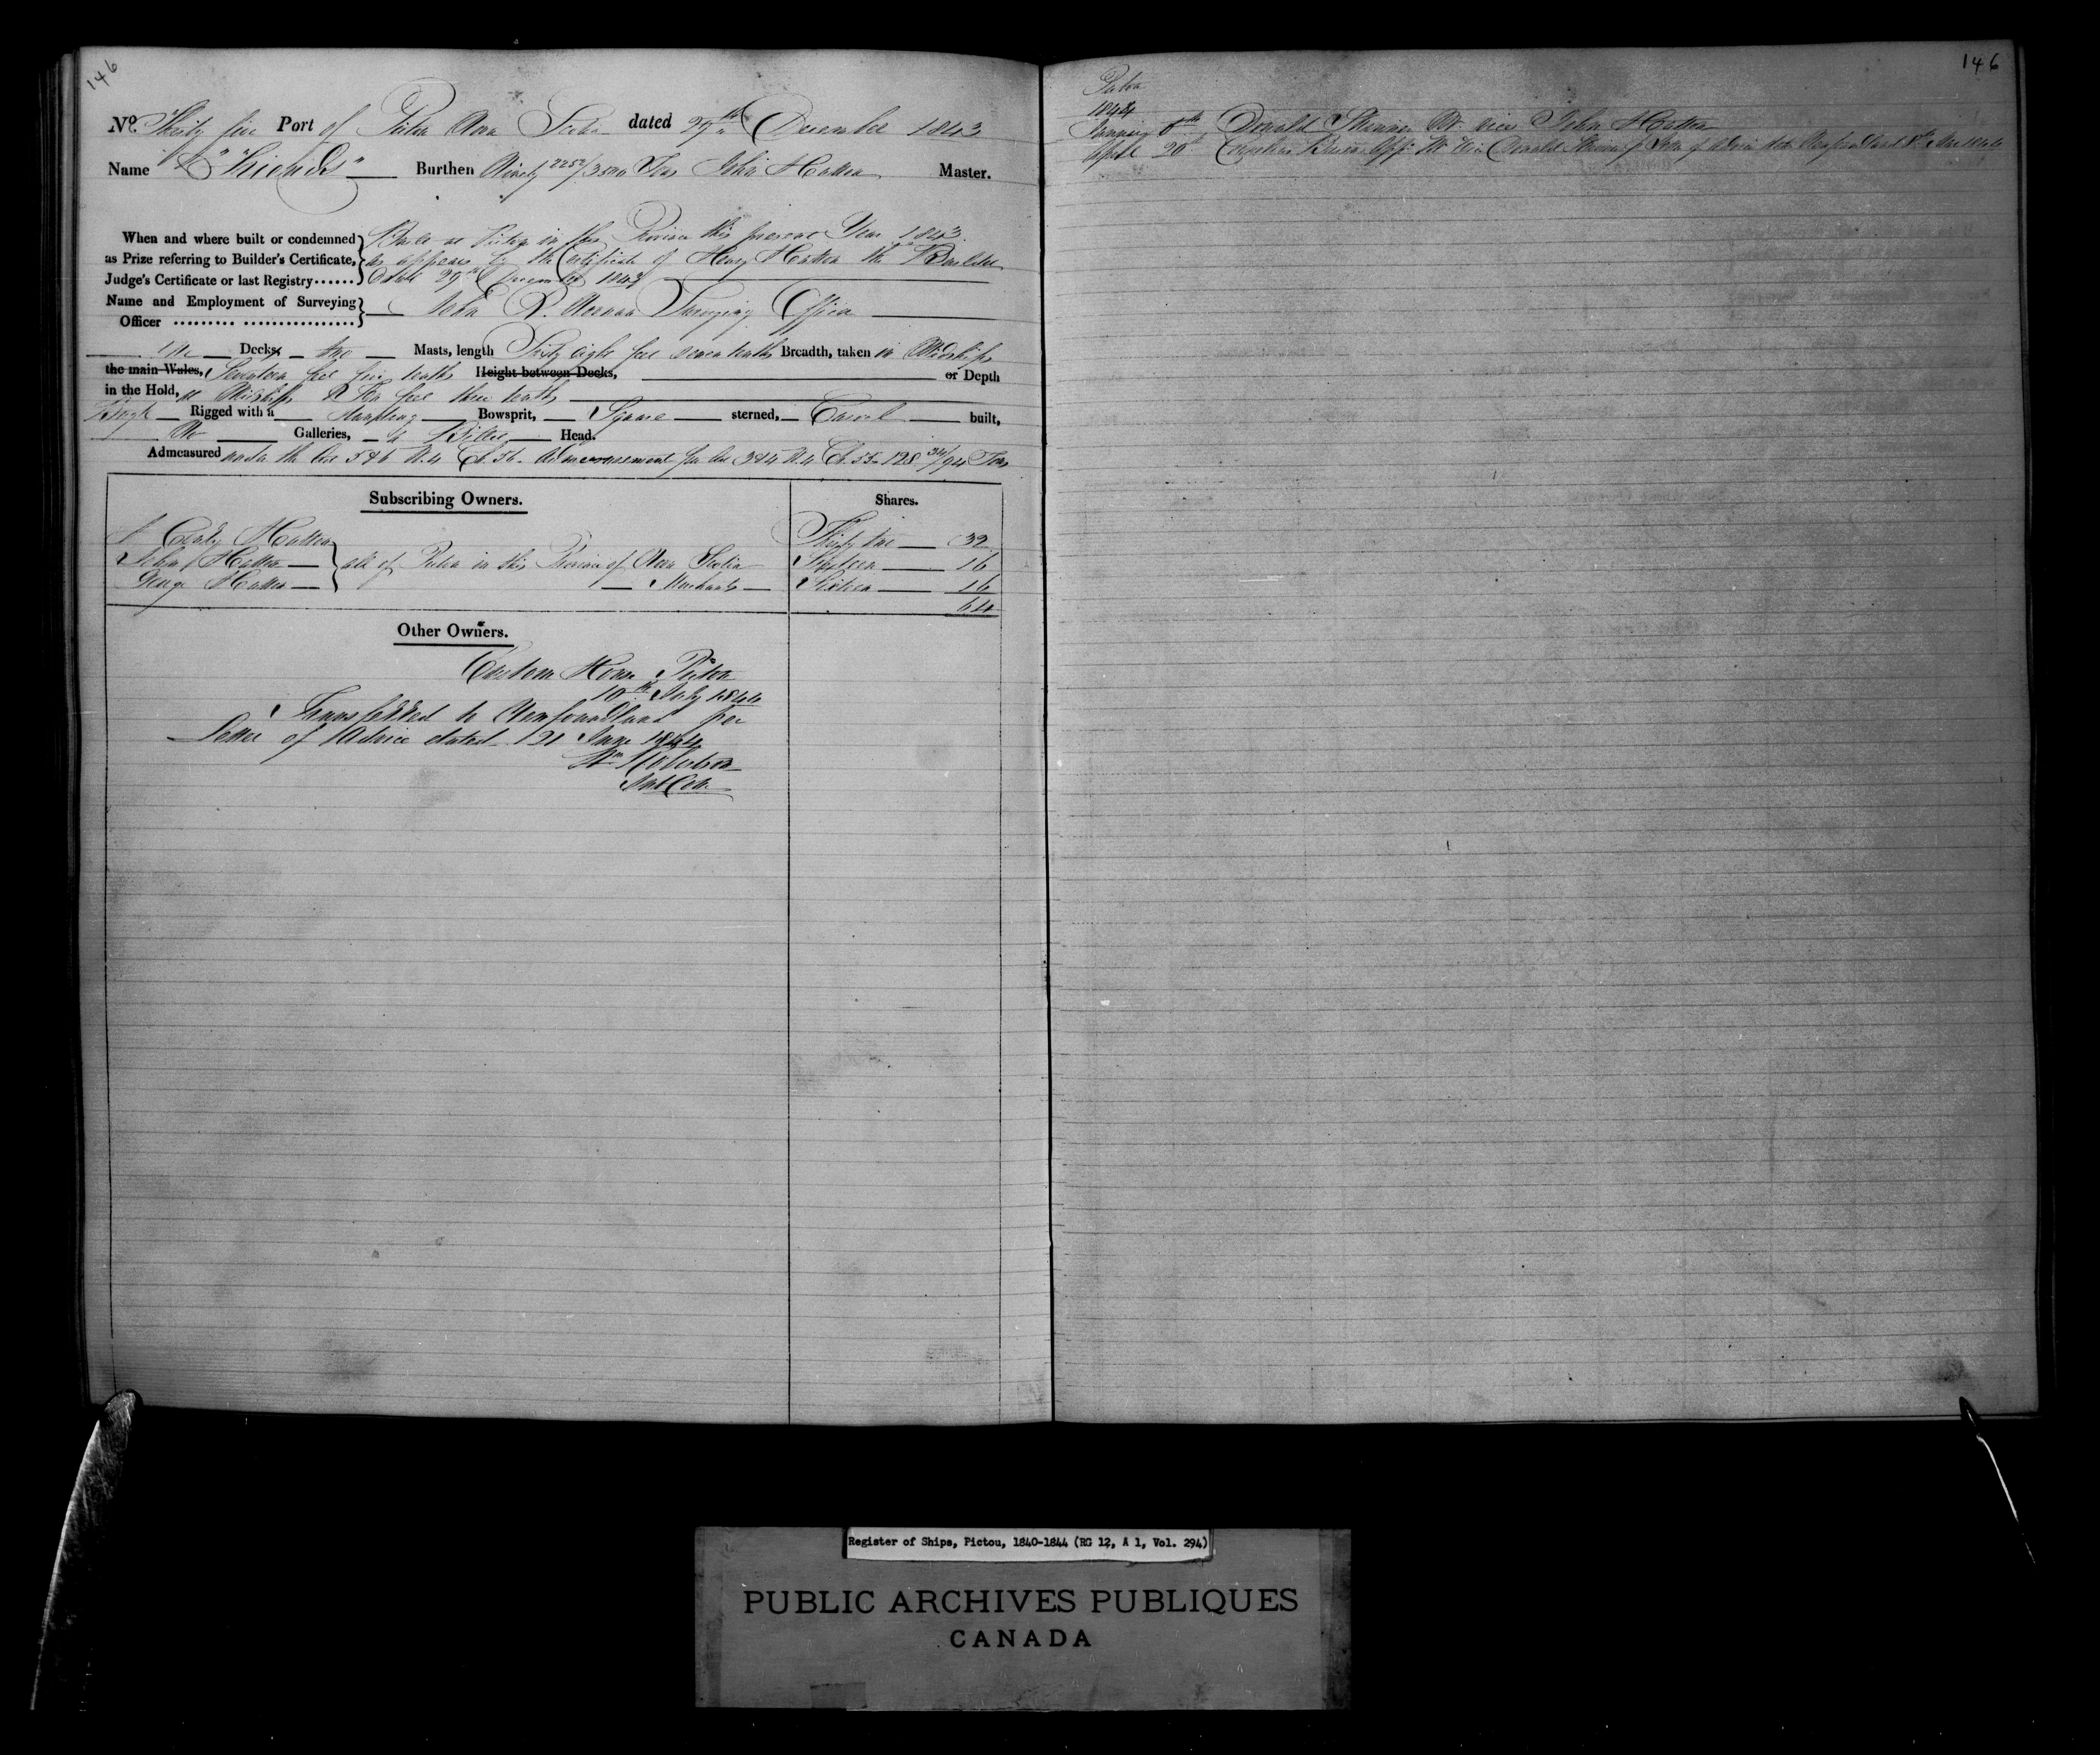 146
No. Thirty five Port of Pictou Nova Scotia dated 29th December 1843
Name "Friends" Burthen Ninety 1225/3500 Tons John Hatton Master.
When and where built or condemned as Prize referring to Builder's Certificate, Judge's Certificate or last Registry......
Built at Pictou in this Province this present Year 1843
as appears by the Certificate of Henry Hatton the Builder
dated 29th December 1843
Name and Employment of Surveying Officer ......... .................
John R. Noonan Surveying Officer
One Decks, two Masts, length Sixty eight feet seven tenths Breadth, taken in Midships
the main Wales, Seventeen feet five tenths Height between Decks, or Depth
in the Hold, at Midships Ten feet three tenths
Brig Rigged with a Standing Bowsprit, Square sterned, Carvel built,
No Galleries, a Billet Head.
Admeasured under the Act 5 & 6 W. 4 Ch. 56. Admeasurement per Act 3 & 4 W. 4 Ch. 55. 128 34/94 Tons
Subscribing Owners. Shares.
Hatton Thirty two 32
John Hatton all of Pictou in this Province of Nova Scotia Sixteen 16
George Hatton Merchants Sixteen 16
64
Other Owners.
Custom House Pictou
10th July 1844
Transferred to Newfoundland per
Letter of Advice dated 21 June 1844
Wm Robertson
146
Pictou
1844
January 6th Donald John Hatton
April 20th Donald of Letter of Advice Newfoundland
Register of Ships, Pictou, 1840-1844 (RG 12, A 1, Vol. 294)
PUBLIC ARCHIVES PUBLIQUES
CANADA